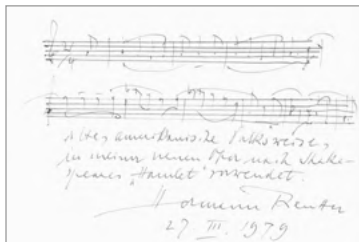 Alte, amerikanische Volksweise,
in meiner neuen Oper nach Shake-
speares "Hamlet" verwendet.
Hermann Reutter
27. III. 1979